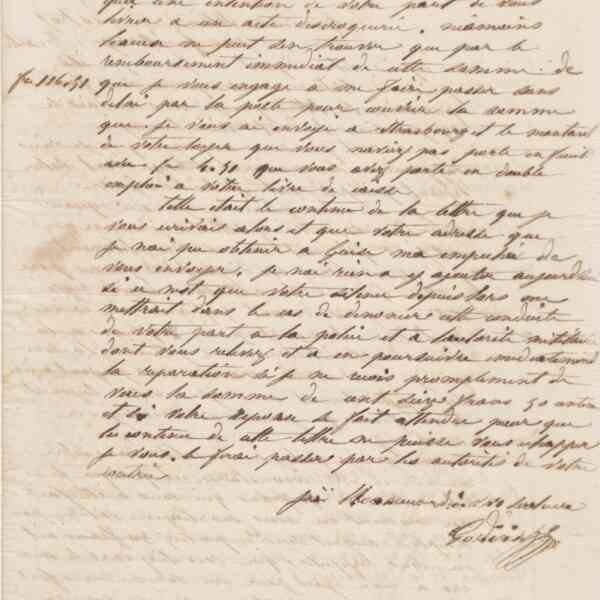 que une intention de votre part de vous
livrer a un acte d'escroquerie, néamoins
l'excuse ne peut s'en trouver que par le
remboursement immédiat de cette somme de
fr 116.51 que je vous engage a me faire passer sans
délai par la poste pour couvrir la somme
que je vous ai envoyé a Strasbourg et le montant
de votre loyer que vous n'aviez pas porté en fait
avec fr 4.50 que vous avez porté en double
emploi a votre livre de caisse
Telle était le contenu de la lettre que je
vous écrivais alors et que votre adresse que
je n'ai pu obtenir a Guise m'a empêché de
vous envoyer, je n'ai rien a y ajouter aujourd'hui
si ce n'est que votre silence depuis lors me
mettrait dans le cas de dénoncer cette conduite
de votre part a la police et a l'autorité militaire
dont vous relevez et a en poursuivre immédiatement
la réparation si je ne reçois promptement de
vous la somme de cent seize francs 50 centimes
et si votre réponse se fait attendre pour que
le contenu de cette lettre ne puisse vous échapper
je vous le ferai passer par les autorités de votre
J'ai Monsieur
Godin